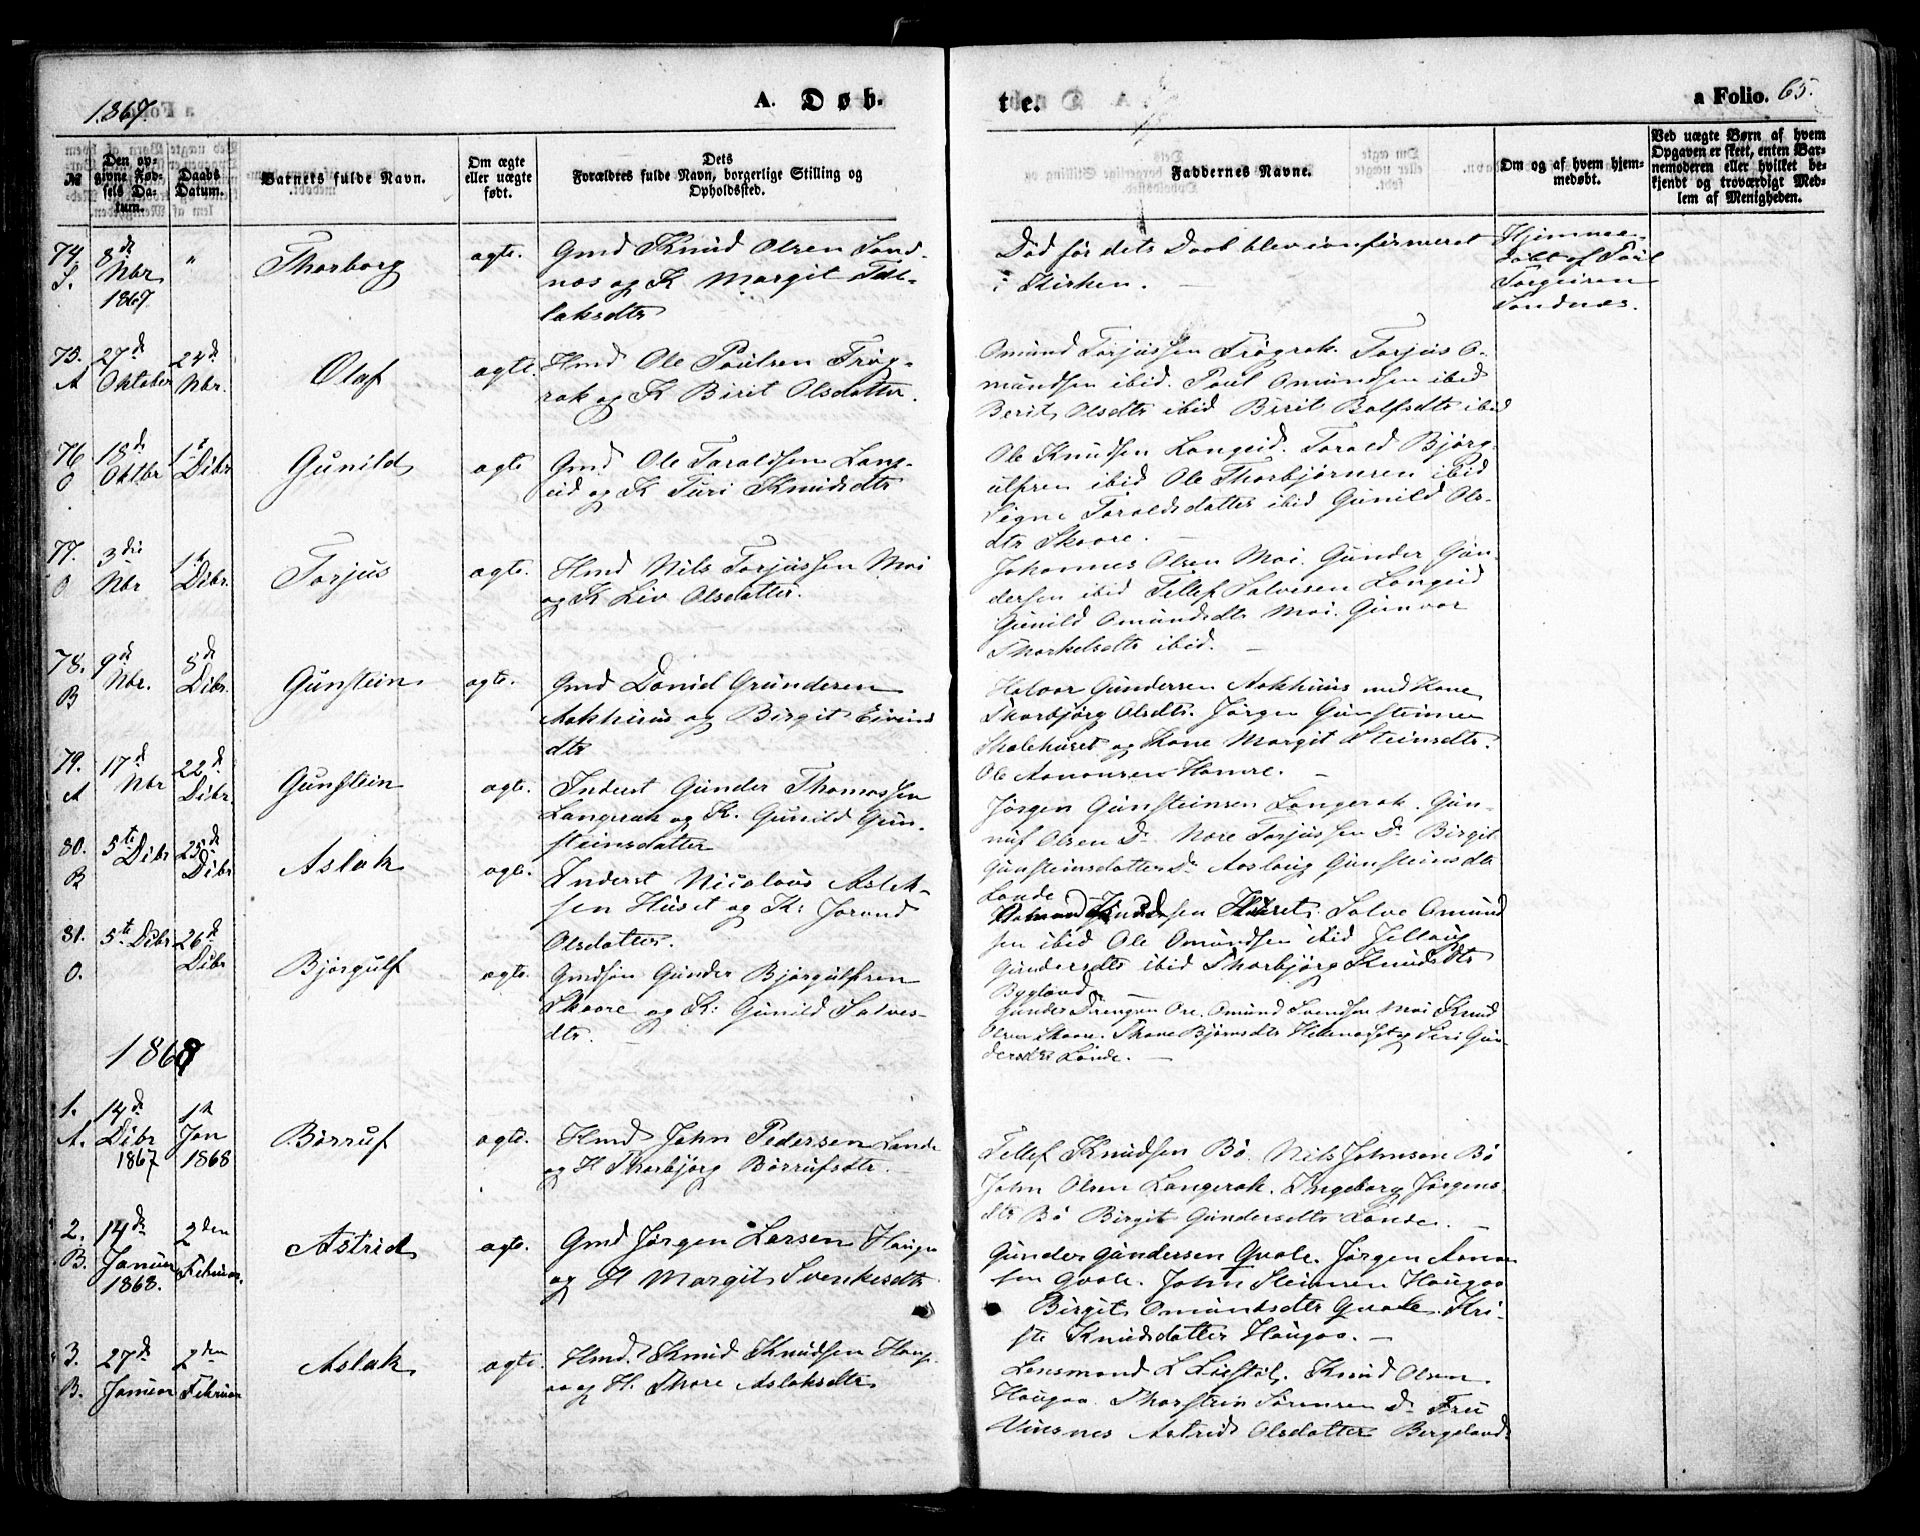 1867.
A. Døb-
te.
a Folio. 65.
№
Den op-
givne Fød-
sels Da-
tum.
Daabs
Datum.
Barnets fulde Navn.
Om ægte
eller uægte
født.
Dets
Forældres fulde Navn, borgerlige Stilling og
Opholdssted.
Faddernes Navne.
Om og af hvem hjem-
medøbt.
Ved uægte Børn af hvem
Opgaven er skeet, enten Bar-
nemoderen eller hvilket be-
kjendt og troværdigt Med-
lem af Menigheden.
74.
S.
8de
Nbr
1867.
"
Thorborg
ægte.
Gmd Knud Olsen Sand-
nes og K Margit
laksdtr
Død før dets Daab blev
i Kirken.
Hjemme-
døbt af
Torgeirsen
Sandnæs.
75.
A
27de
Oktober
24de
Nbr.
Olaf
ægte.
Hmd Ole Paulsen Frøg-
rak og K Birit Olsdatter.
Omund Torjussen Frøgrak. Torjus O-
mundsen ibid. Paul Omundsen ibid
Berit Olsdtr ibid Birit Bolfsdtr ibid
76
O
18de
Oktbr
1ste
Dibr
Gunild
ægte
Gmd Ole Taraldsen Lang-
eid og K Turi Knudsdtr
Ole Knudsen Langeid. Tarald Bjørg-
ulfsen ibid Ole Thorbjørnsen ibid
Signe Taraldsdatter ibid Gunild Ols-
dtr Skaare.
77.
O
3die
Nbr
1ste
Dibr.
Torjus
ægte.
Hmd Nils Torjussen Moi
og K Liv Olsdatter.
Johannes Olsen Moi. Gunder Gun-
dersen ibid Tellef Salvesen Langeid
Gunild Omundsdtr Moi. Gunvor
Thorkelsdtr ibid.
78.
B
9de
Nbr.
8de
Dibr.
Gunstein
ægte.
Gmd Daniel Gundersen
Aakhuus og Birgit Eivinds
dtr
Halvor Gundersen Aakhuus med Kone
Thorbjørg Olsdtr. Jørgen Gunsteinsen
Skolehuset og Kone Margit Steinsdtr.
Ole Aanonsen Hamre.
79.
A
17de
Nbr
22de
Dibr.
Gunstein
ægte.
Inderst Gunder Thomassen
Langerak og K. Gunild Gun-
steinsdatter
Jørgen Gunsteinsen Langerak. Gun-
nuf Olsen Do Nore Torjussen Do Birgit
Gunsteinsdatter Do Aaslaug Gunsteinsdtr
Lande
80.
B
5te Dibr
25de
Dibr
Aslak
ægte.
Inderst Nicolaus Aslak-
sen Huset og K: Jorand
Olsdatter.
Knudsen Huset. Salve Omund
sen ibid Ole Omundsen ibid
Gundersdtr ibid Thorbjørg Knudsdtr
Bygland
81.
O.
5te Dibr
26de
Dibr
Bjørgulf
ægte.
Gmdsen Gunder Bjørgulfsen
Skaare og K: Gunild Salves-
dtr.
Gunder Drengsen Ose. Omund Svendsen Moi Knud
Olsen Skaare. Thone Bjørnsdtr og Siri Gun-
dersdtr Lande.
1868
1.
A.
14de
Dibr
1867
1ste
Jan
1868
Børruf
ægte.
Hmd John Pedersen Lande
og H Thorbjørg Børrufsdtr.
Tellef Knudsen Bø. Nils Johnsen Bø
John Olsen Langerak. Ingeborg Jørgens-
dtr Bø Birgit Gundersdtr Lande.
2.
B.
14de
Januar
1868.
2den
Februar.
Astrid
ægte.
Gmd Jørgen Larsen Haugaa
og H Margit Svenkesdtr
Gunder Gundersen Qvale. Jørgen Aanon
sen Qvale. John Steinsen Haugaa
Birgit Omundsdtr Qvale. Kri-
ste Knudsdatter Haugaa.
3.
B.
27de
Januar
2den
Februar
Aslak
ægte.
Hmd. Knud Knudsen Haug-
aa og H. Thore Aslaksdtr
Lensmand L Liestøl. Knud Olsen
Haugaa. Thorstein Sørensen Do Fru
Vinsnes Astrid Olsdatter Bergeland.